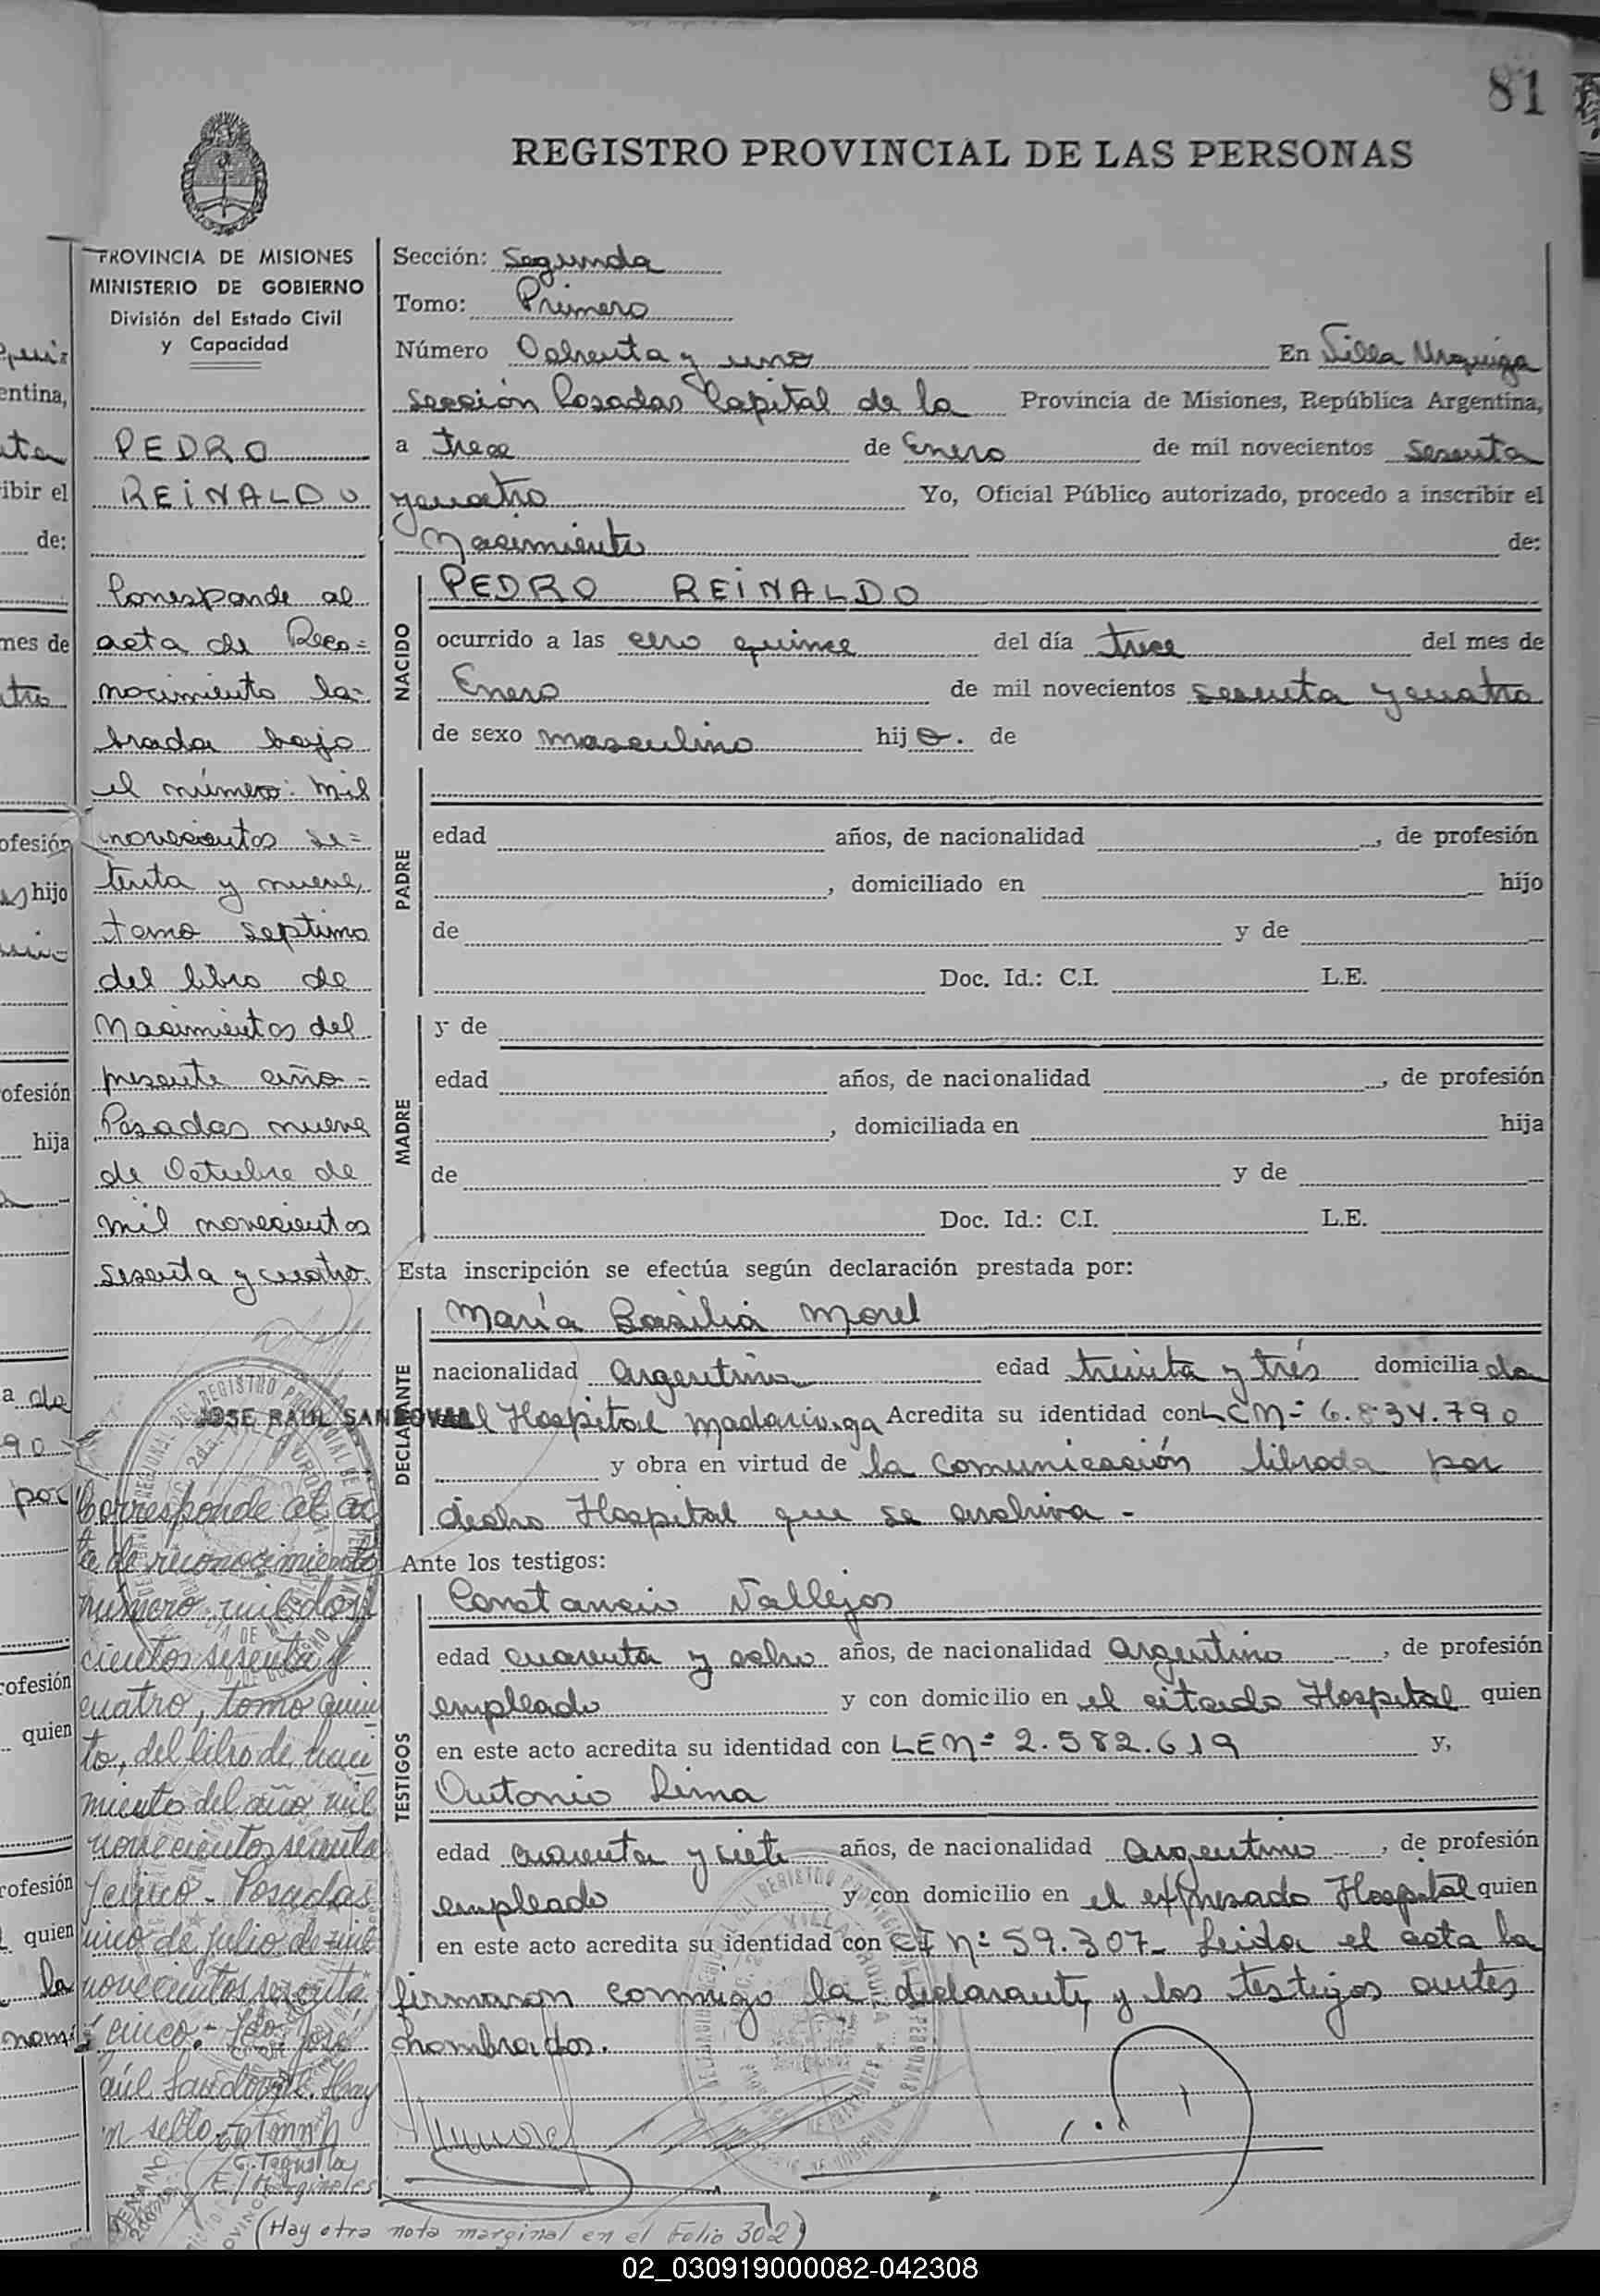 81
REGISTRO PROVINCIAL DE LAS PERSONAS
PROVINCIA DE MISIONES
MINISTERIO DE GOBIERNO
División del Estado Civil
y Capacidad
PEDRO
REINALDO
Corresponde al
acta de Reco=
nocimiento la=
brada bajo
el número: mil
novecientos se=
tenta y nueve,
tomo septimo
del libro de
Nacimientos del
presente año-
Posadas nueve
de Octubre de
mil novecientos
sesenta y cuatro.
JOSE RAUL SANDOVAL
Corresponde al ac
ta de reconocimiento
número mil dos
cientos sesenta y
cuatro, tomo quin
to, del libro de naci
miento del año mil
novecientos sesenta
y cinco- Posadas
de julio de mil
novecientos sesenta
cinco.- Fdo. José
Raúl Sandoval. Hay
un sello.-
Sección: Segunda
Tomo: Primero
Número Ochenta y uno En Villa Urquiza
sección Posadas Capital de la Provincia de Misiones, República Argentina,
a trece de Enero de mil novecientos sesenta
y cuatro Yo, Oficial Público autorizado, procedo a inscribir el
Nacimiento de:
NACIDO
PEDRO REINALDO
ocurrido a las cero quince del día trece del mes de
Enero de mil novecientos sesenta y cuatro
de sexo masculino hijo. de
PADRE
edad años, de nacionalidad , de profesión
, domiciliado en hijo
de y de
Doc. Id.: C.I. L.E.
MADRE
y de
edad años, de nacionalidad , de profesión
, domiciliada en hija
de y de
Doc. Id.: C.I. L.E.
Esta inscripción se efectúa según declaración prestada por:
DECLARANTE
María Basilia Morel
nacionalidad Argentina edad treinta y trés domiciliada
el Hospital Madariaga Acredita su identidad con LC Nº 6.834.790
y obra en virtud de la comunicación librada por
dicho Hospital que se archiva-
Ante los testigos:
TESTIGOS
Constancio Vallejos
edad cuarenta y ocho años, de nacionalidad Argentino, de profesión
empleado y con domicilio en el citado Hospital quien
en este acto acredita su identidad con LE Nº 2.582.619 y,
Antonio Lima
edad cuarenta y siete años, de nacionalidad Argentino, de profesión
empleado y con domicilio en el expresado Hospital quien
en este acto acredita su identidad con CI Nº 59.307- Leida el acta la
firmaron conmigo la declarante y los testigos antes
nombrados.
(Hay otra nota marginal en el Folio 302)
02_030919000082-042308